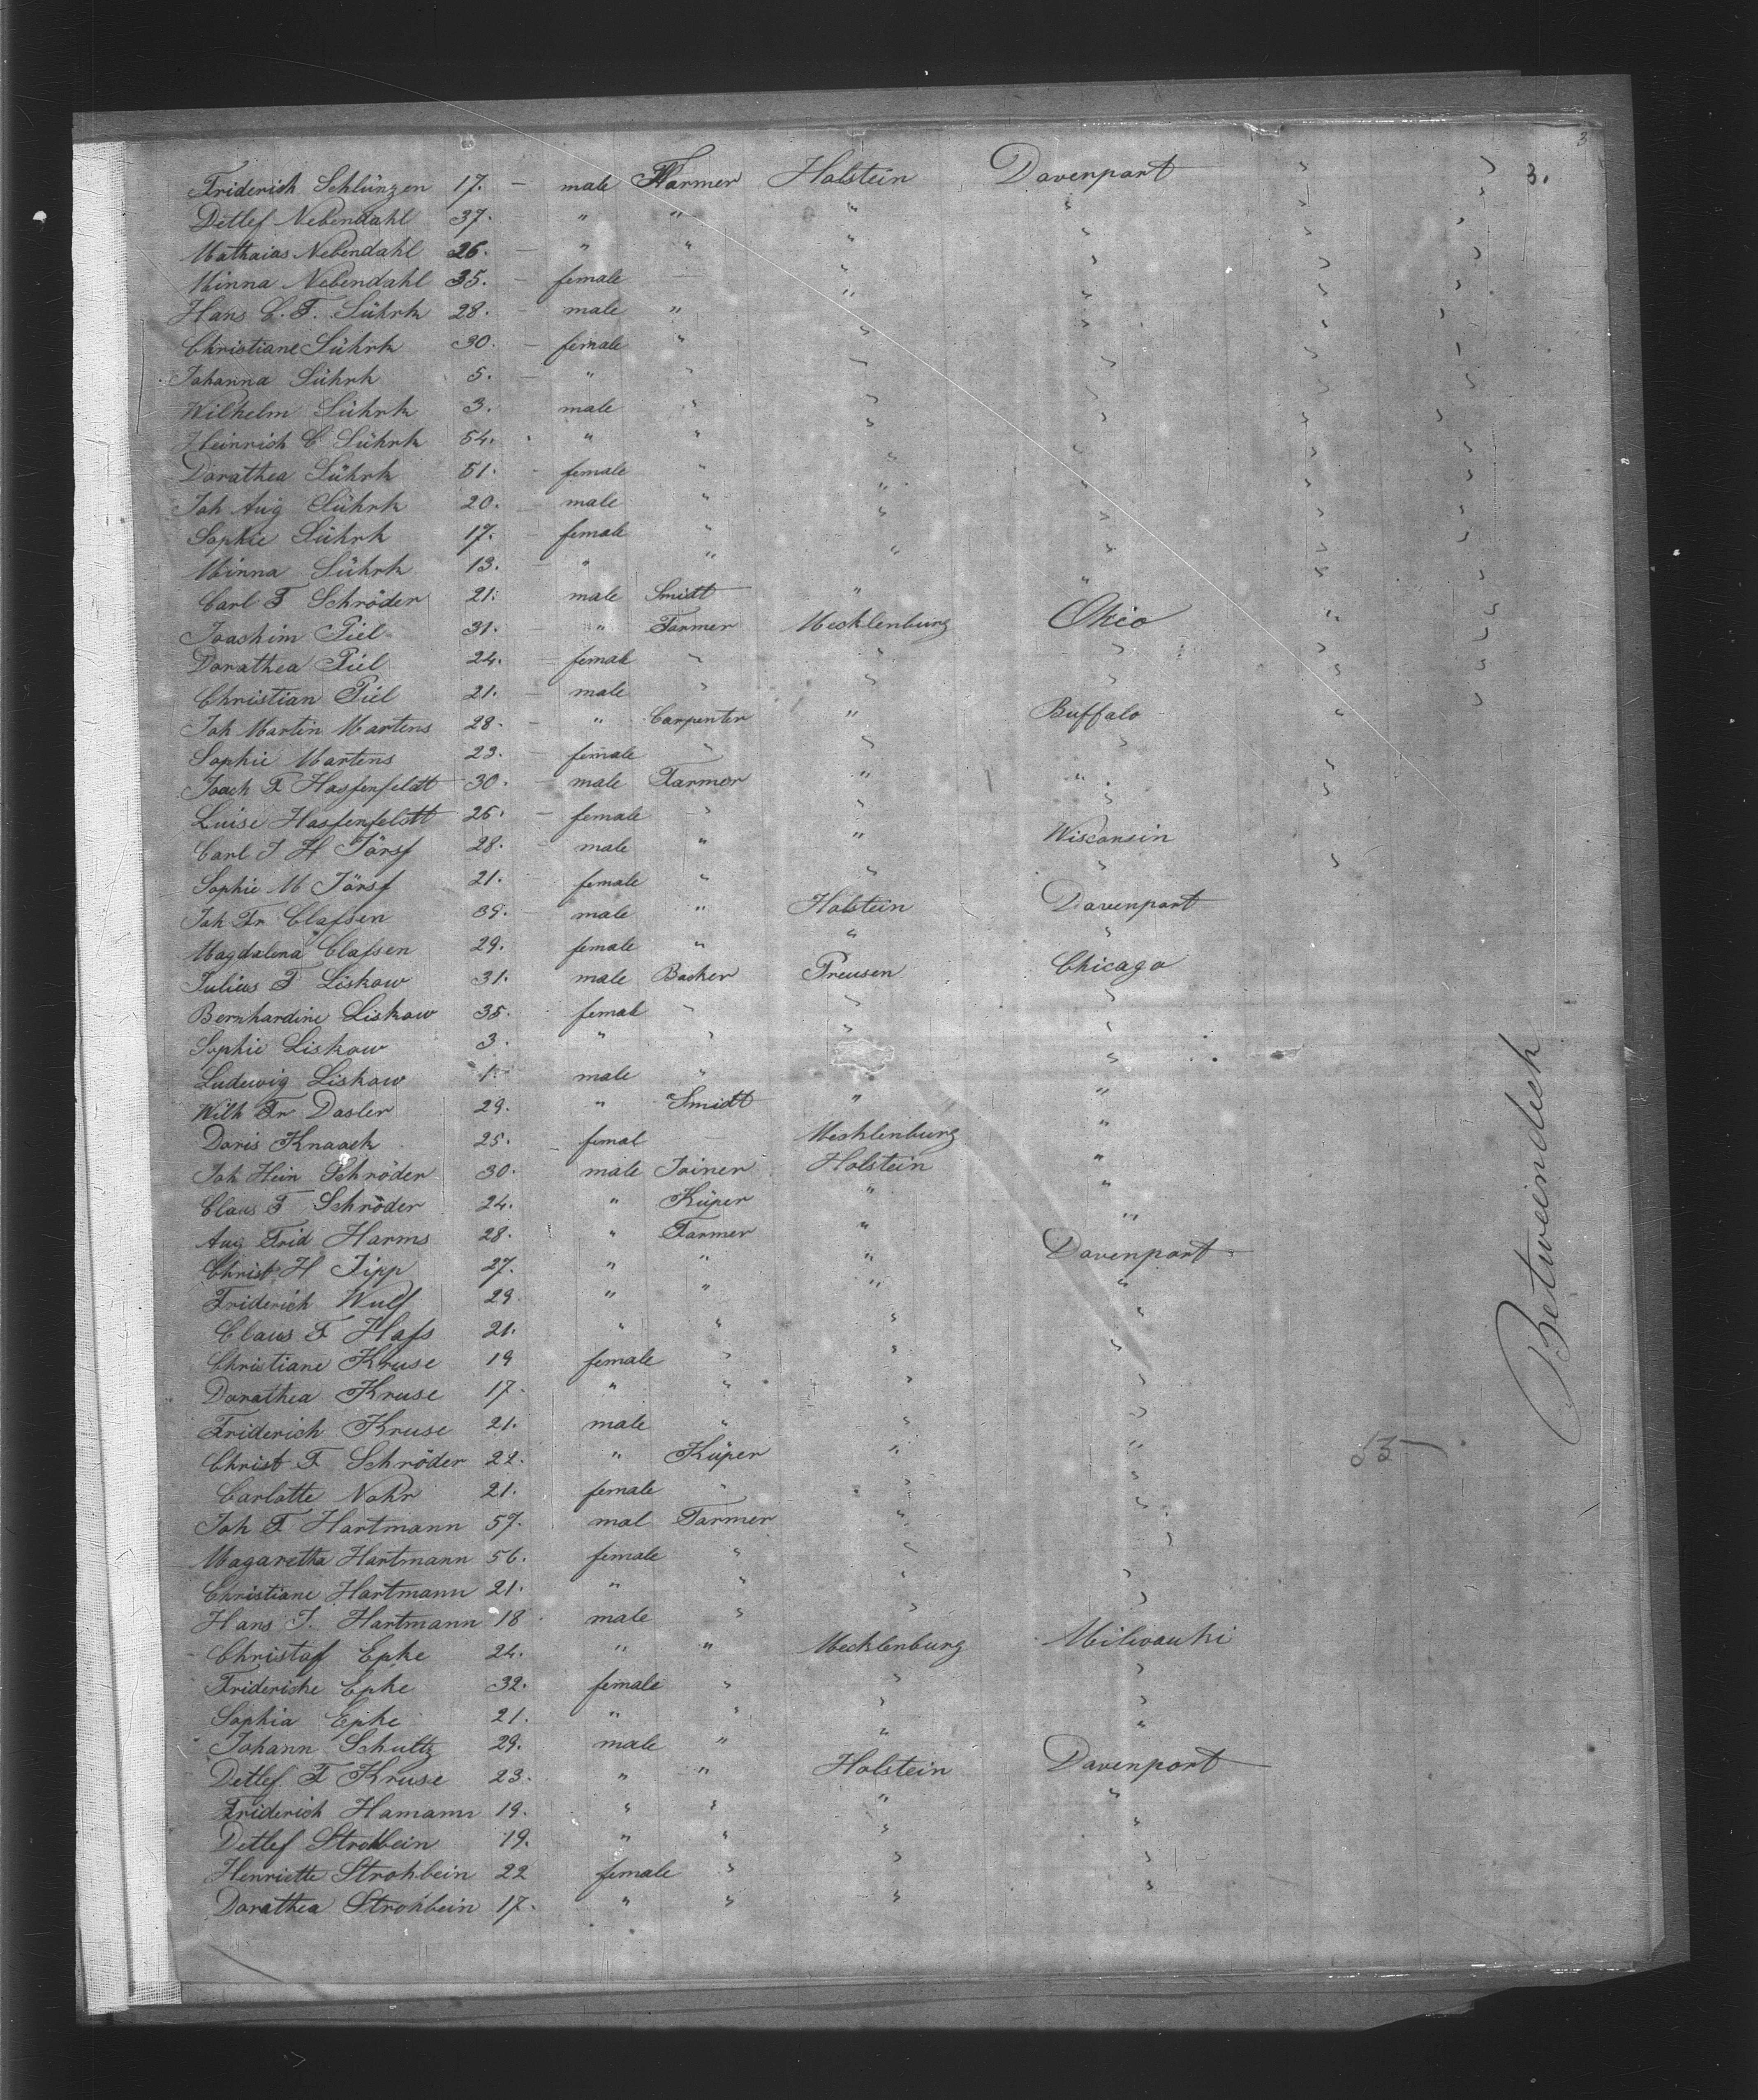 3
Friderich Schlünzen 17. — male Farmer Holstein Davenport " " 3.
Detlef Nebendahl 37. — " " " " " "
Mathaias Nebendahl 26. — " " " " " "
Minna Nebendahl 35. — female — " " " "
Hans C. F. Lührk 28. — male " " " " "
Christiane Lührk 30. — female " " " " "
Johanna Lührk 5. — " " " " " "
Wilhelm Lührk 3. male " " " " "
Heinrich C Lührk 54. " " " " " "
Dorathea Lührk 51. female " " " " "
Joh Aug Lührk 20. — male " " " " "
Sophie Lührk 17. — female " " " " "
Minna Lührk 13. — " " " " " "
Carl F Schröder 21. male Smidt " " " "
Joachim Piel 31. — " Farmer Mecklenburg Ohio " "
Dorathea Piel 24. — femak " " " " "
Christian Piel 21. — male " " " " "
Joh Martin Martens 28. — " Carpenter " Buffalo " "
Sophie Martens 23. — female " " "
Joach F Hassenfeldt 30. — male Farmer " " " "
Luise Hassenfeldt 25. — female " " " "
Carl J H Jörss 28. male " " Wisconsin
Sophie M Jörss 21. female " " " "
Joh Fr Classen 39. — male " Holstein Davenport
Magdalena Classen 29. female " " "
Julius F Liskow 31. male Backer Preusen Chicago
Bernhardine Liskow 35. femak " " "
Sophie Liskow 3. " " " "
Ludewig Liskow 1. male " "
Wilh Fr Dasler 29. " Smidt " "
Doris Knaack 25. — femal — Mecklenburg "
Joh Hein Schröder 30. male Joiner Holstein "
Claus F Schröder 24. " Küper " "
Aug Frid Harms 28. " Farmer " "
Christ H Tipp 27. " " " Davenport
Friderich Wulf 29. " " " "
Claus F Hass 21. " " " "
Christiane Kruse 19 female " " "
Dorathea Kruse 17. " " " "
Friderich Kruse 21. male " " "
Christ F Schröder 22. " Küper " "
Carlotte Nohr 21. female " " "
Joh F Hartmann 57. mal Farmer " "
Magaretha Hartmann 56. female " " "
Christiane Hartmann 21. " " " "
Hans J. Hartmann 18 male " " "
Christof Epke 24. " " Mecklenburg Milwauki
Friderishe Epke 32. female " " "
Sophia Epke 21. " " " "
Johann Schultz 29. male " " "
Detlef F Kruse 23. " " Holstein Davenport
Friderich Hamann 19. " " " "
Detlef Strohbein 19. " " " "
Henriette Strohbein 22 female " " "
Dorathea Strohbein 17. " " " "
Betweindeck